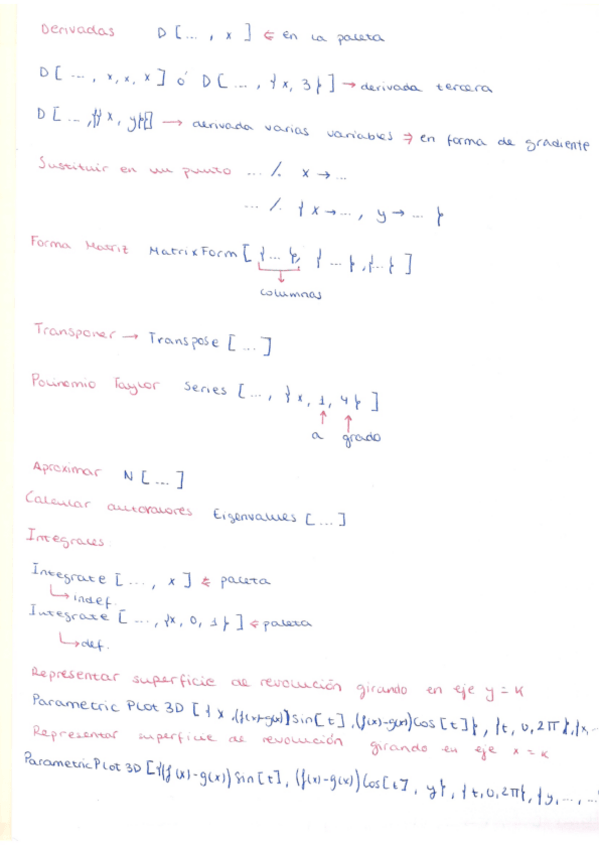 Derivadas D [ ... , x ] ← en la paleta
D [ ... , x, x, x ] ó D [ ... , { x, 3 } ] → derivada tercera
D [ ... , {{ x, y }} ] → derivada varias variables ⇒ en forma de gradiente
Sustituir en un punto ... /. x → ...
... /. { x → ... , y → ... }
Forma Matriz MatrixForm [ { ... }, { ... }, { ... } ]
columnas
Transponer → Transpose [ ... ]
Polinomio Taylor Series [ ... , { x, 1, 4 } ]
a grado
Aproximar N [ ... ]
Calcular autovalores Eigenvalues [ ... ]
Integrales
Integrate [ ... , x ] ← paleta
indef.
Integrate [ ... , { x, 0, 1 } ] ← paleta
def.
Representar superficie de revolución girando en eje y = k
Parametric Plot 3D [ { x, (f(x)-g(x)) sin [ t ], (f(x)-g(x)) cos [ t ] }, { t, 0, 2π }, { x, ...
Representar superficie de revolución girando en eje x = k
Parametric Plot 3D [ { (f(x)-g(x)) sin [ t ], (f(x)-g(x)) cos [ t ], y }, { t, 0, 2π }, { y, ..., ...